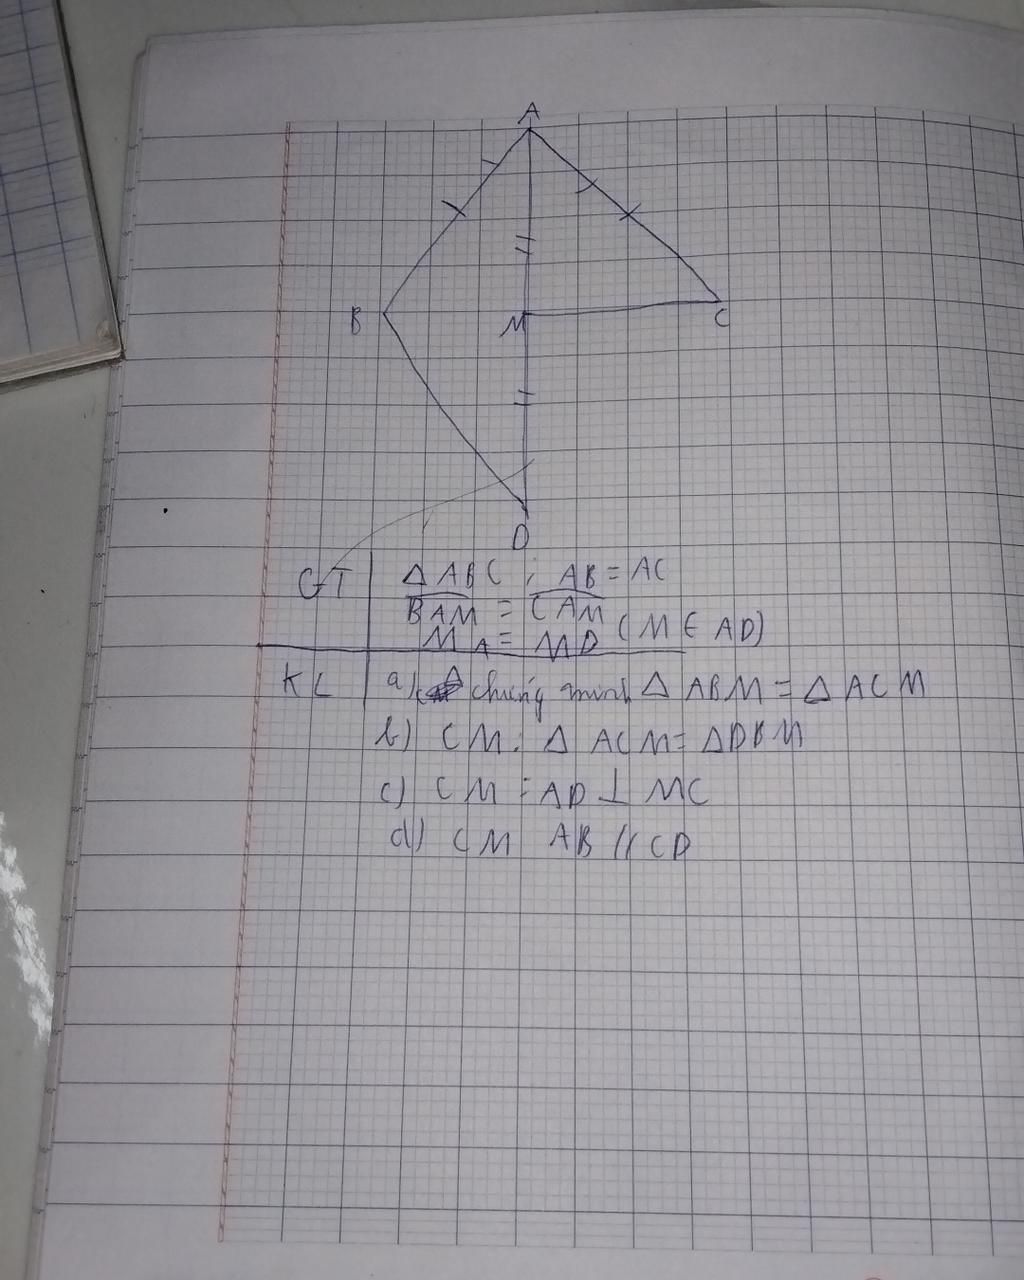 A
B
M
C
D
GT
△ABC ; AB = AC
BAM = CAM
MA = MD (M ∈ AD)
KL
a) chứng minh △ABM = △ACM
b) CM : △ACM = △DBM
c) CM : AD ⊥ MC
d) CM AB // CD